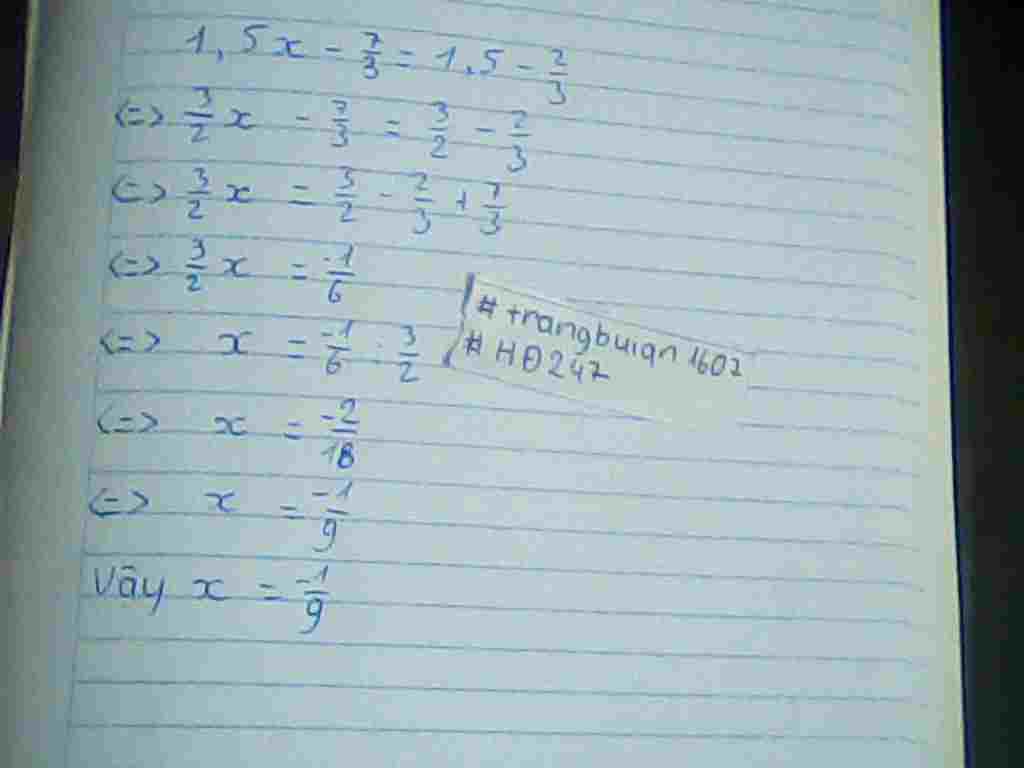 1,5x - 7/3 = 1,5 - 2/3
<=> 3/2 x - 7/3 = 3/2 - 2/3
<=> 3/2 x = 3/2 - 2/3 + 7/3
<=> 3/2 x = -1/6
<=> x = -1/6 : 3/2
<=> x = -2/18
<=> x = -1/9
Vậy x = -1/9
# trangbuiqn1607
# HĐ247